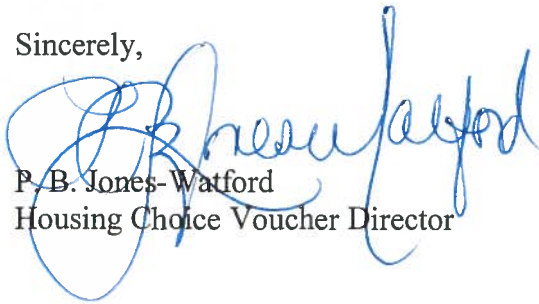 Sincerely,
P. B. Jones-Watford
P. B. Jones-Watford
Housing Choice Voucher Director